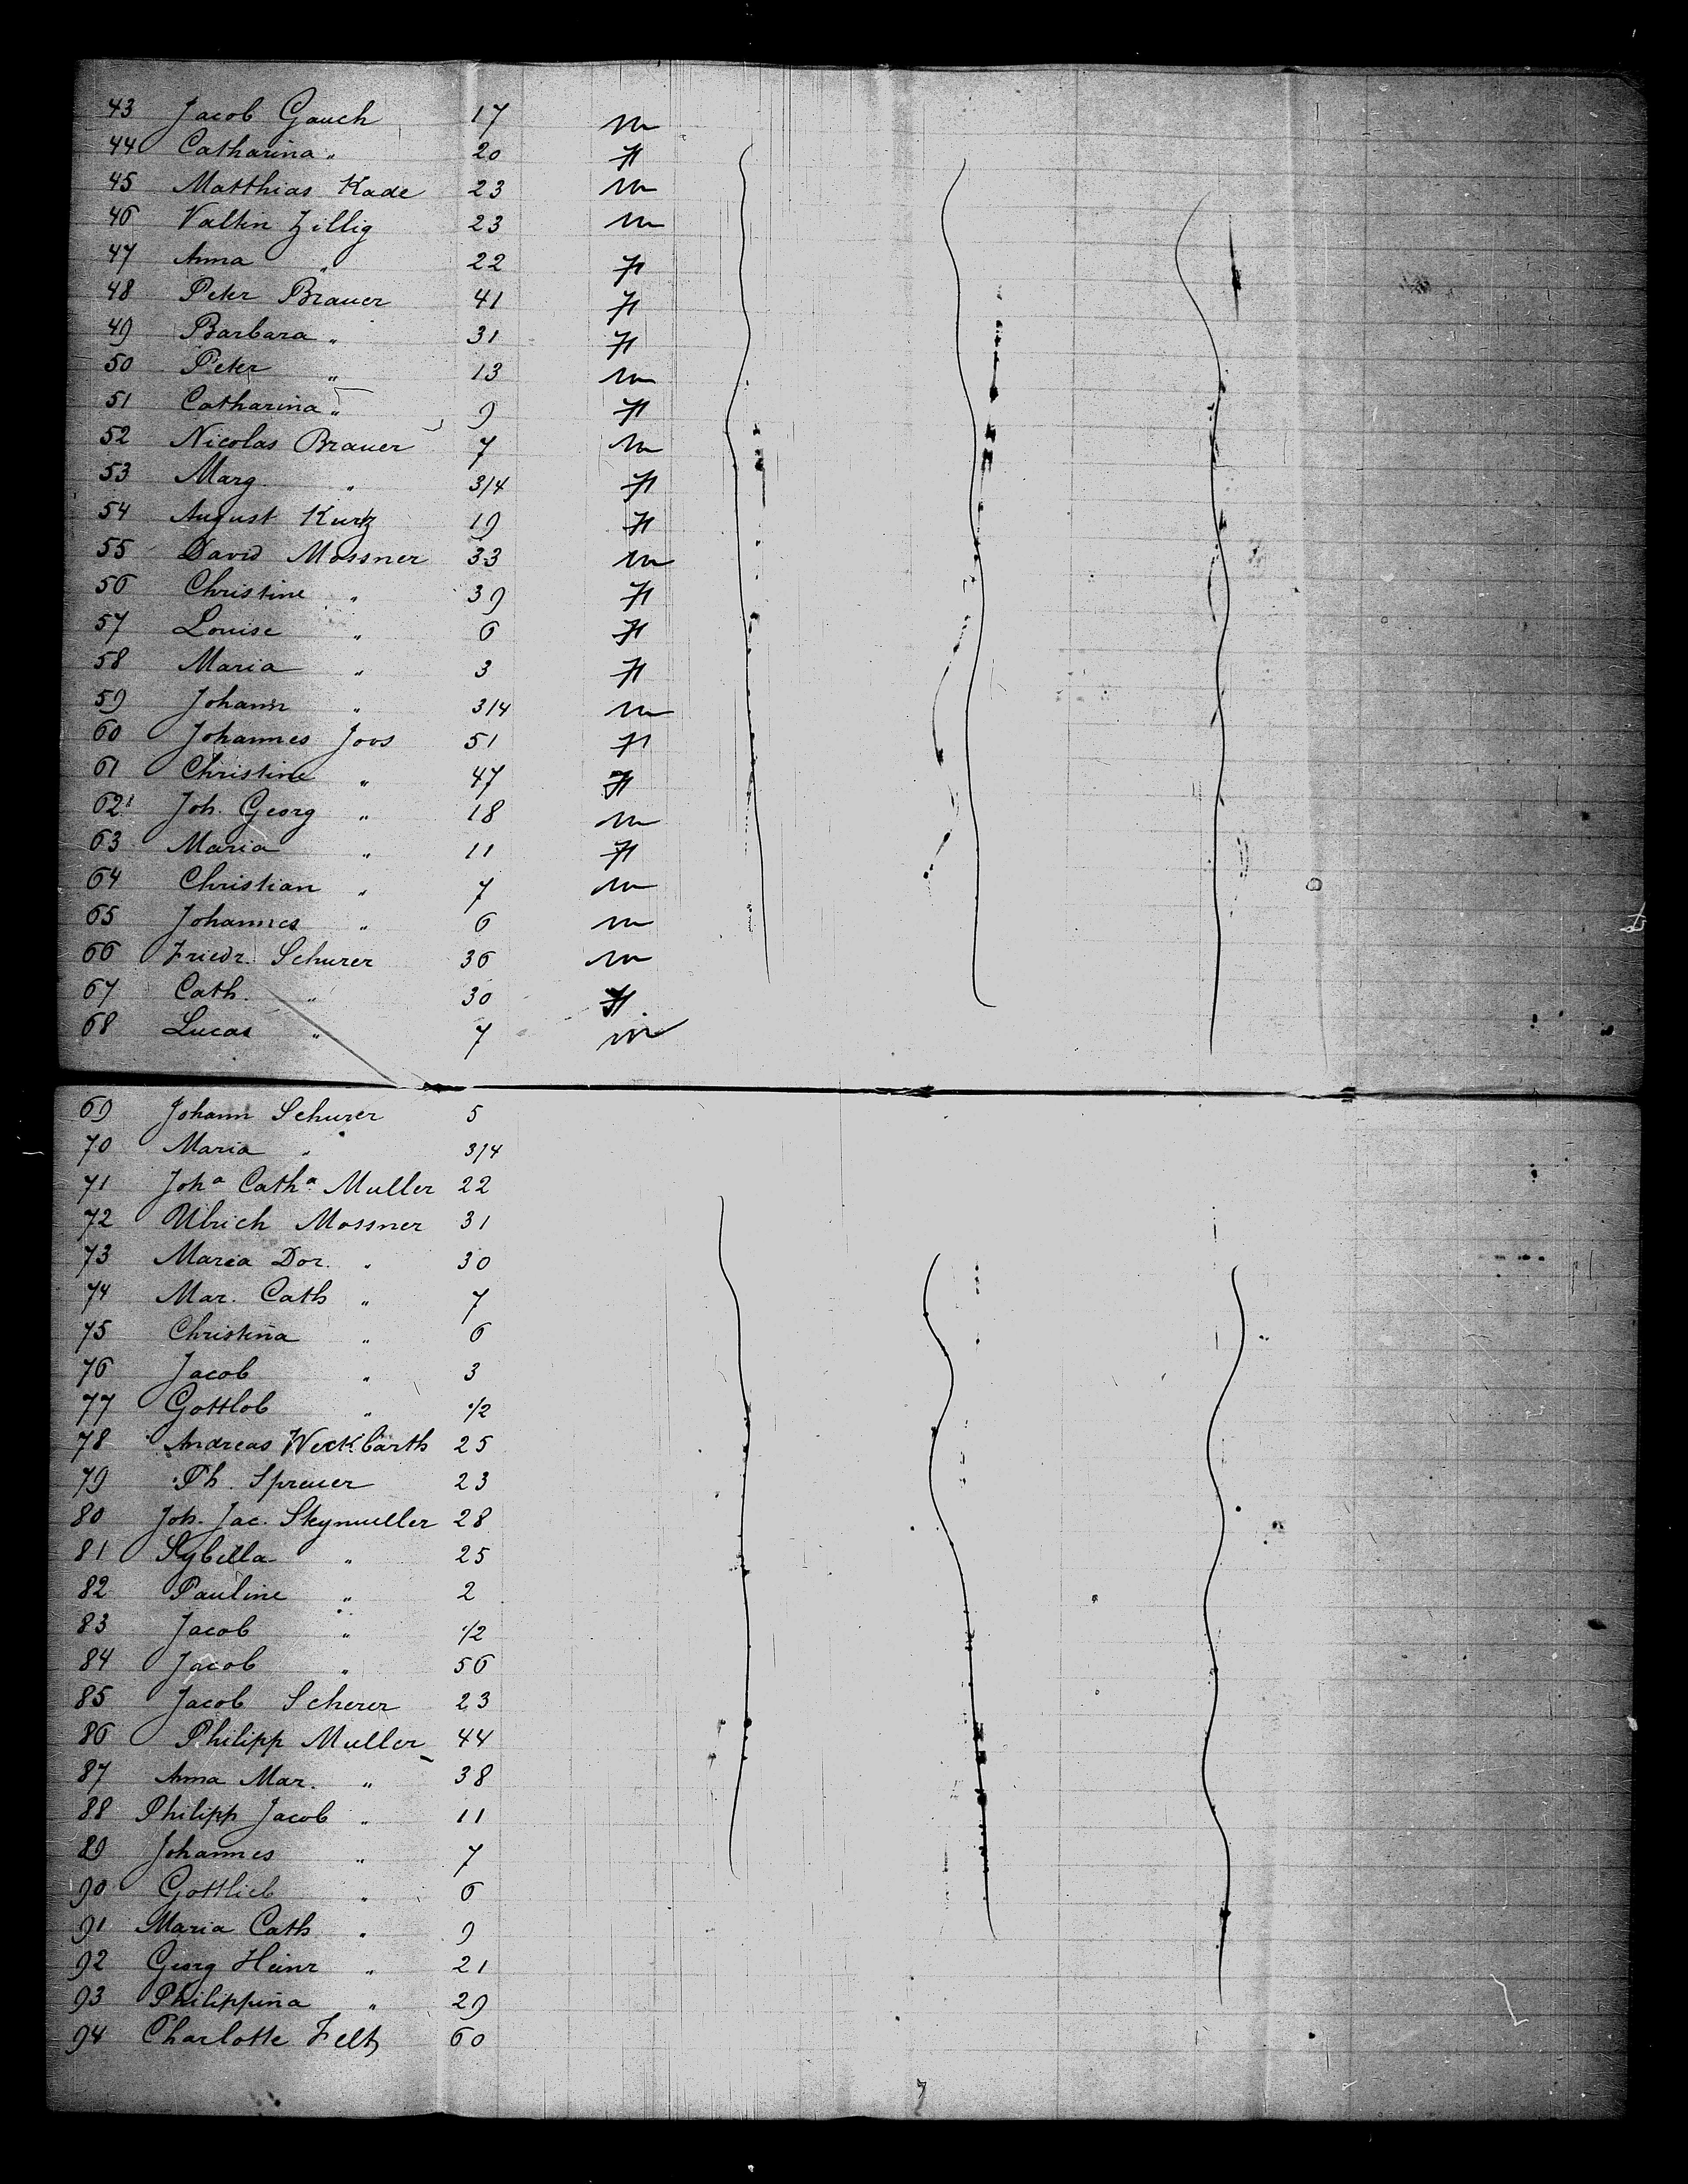 43 Jacob Gauch 17 m
44 Catharina " 20 f
45 Matthias Kade 23 m
46 Valtin Zillig 23 m
47 Anna " 22 f
48 Peter Brauer 41 f
49 Barbara " 31 f
50 Peter " 13 m
51 Catharina " 9 f
52 Nicolas Brauer 7 m
53 Marg. " 3/4 f
54 August Kurtz 19 f
55 David Mossner 33 m
56 Christine " 39 f
57 Louise " 6 f
58 Maria " 3 f
59 Johann " 3/4 m
60 Johannes Joos 51 f
61 Christine " 47 f
62 Joh. Georg " 18 m
63 Maria " 11 f
64 Christian " 7 m
65 Johannes " 6 m
66 Friedr. Schurer 36 m
67 Cath. " 30 f
68 Lucas " 7 m
69 Johann Schurer 5
70 Maria " 3/4
71 Joha Catha Muller 22
72 Ulrich Mossner 31
73 Maria Dor. " 30
74 Mar. Cath " 7
75 Christina " 6
76 Jacob " 3
77 Gottlob " 1/2
78 Andreas Weckbarth 25
79 Ph. Spreuer 23
80 Joh. Jac. Skymuller 28
81 Sybilla " 25
82 Pauline " 2
83 Jacob " 1/2
84 Jacob " 56
85 Jacob Scherer 23
86 Philipp Muller 44
87 Anna Mar. " 38
88 Philipp Jacob " 11
89 Johannes " 7
90 Gottlieb " 6
91 Maria Cath " 9
92 Georg Heinr " 21
93 Philippina " 29
94 Charlotte Feltz 60